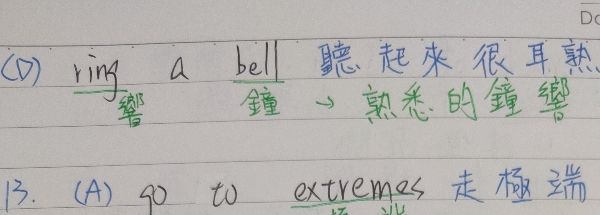 Do
(D) ring a bell 聽起來很耳熟
響 鐘 → 熟悉的鐘響
13. (A) go to extremes 走極端